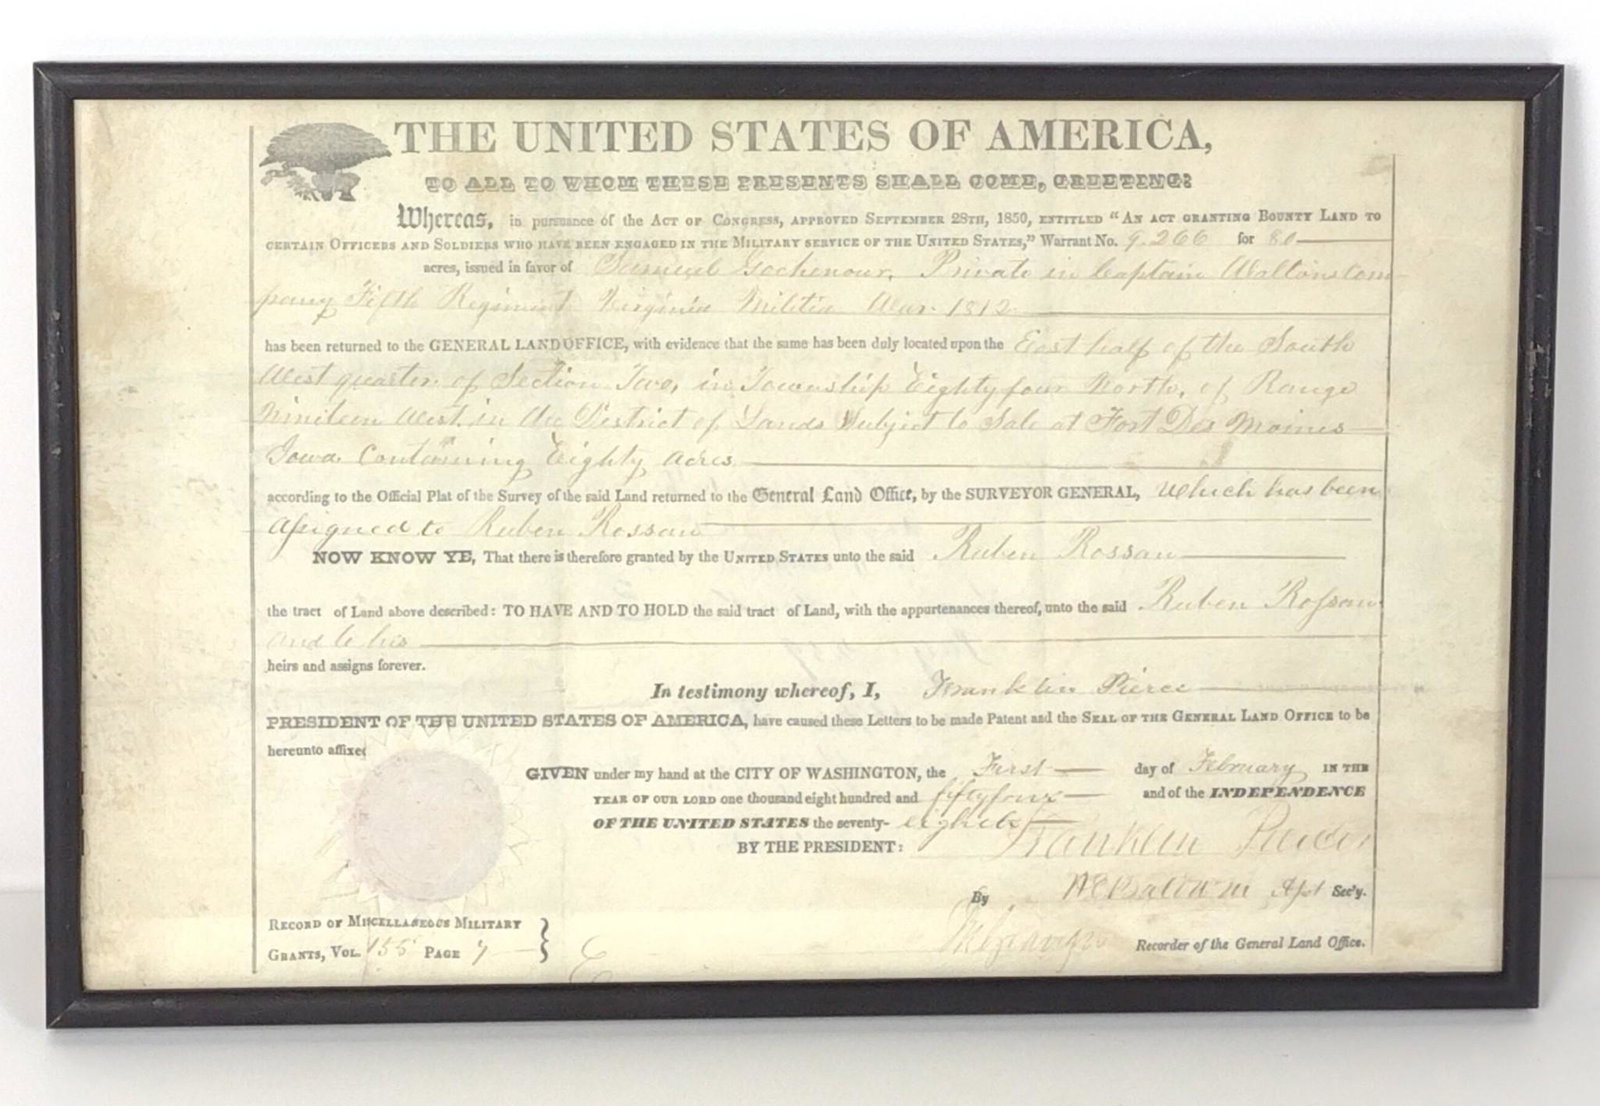 THE UNITED STATES OF AMERICA,
TO ALL TO WHOM THESE PRESENTS SHALL COME, GREETING:
Whereas, in pursuance of the Act of Congress, approved September 28th, 1850, entitled "An act granting Bounty Land to
certain Officers and Soldiers who have been engaged in the Military service of the United States," Warrant No. 9.266 for 80
acres, issued in favor of Samuel Gochenour, Private in Captain Waltons Com-
pany Fifth Regiment Virginia Militia War 1812
has been returned to the GENERAL LAND OFFICE, with evidence that the same has been duly located upon the East half of the South
West quarter of Section Two, in Township Eighty four North, of Range
Nineteen West in the District of Lands Subject to Sale at Fort Des Moines
Iowa Containing Eighty Acres
according to the Official Plat of the Survey of the said Land returned to the General Land Office, by the SURVEYOR GENERAL, which has been
assigned to Ruben Rossan
NOW KNOW YE, That there is therefore granted by the United States unto the said Ruben Rossan
the tract of Land above described: TO HAVE AND TO HOLD the said tract of Land, with the appurtenances thereof, unto the said Ruben Rossan
and to his
heirs and assigns forever.
In testimony whereof, I, Franklin Pierce
PRESIDENT OF THE UNITED STATES OF AMERICA, have caused these Letters to be made Patent and the Seal of the General Land Office to be
hereunto affixed
GIVEN under my hand at the CITY OF WASHINGTON, the First day of February in the
year of our Lord one thousand eight hundred and fifty four and of the INDEPENDENCE
OF THE UNITED STATES the seventy-eighth
BY THE PRESIDENT: Franklin Pierce
By Asst Sec'y.
Record of Miscellaneous Military
Grants, Vol. 155 Page 7
Recorder of the General Land Office.